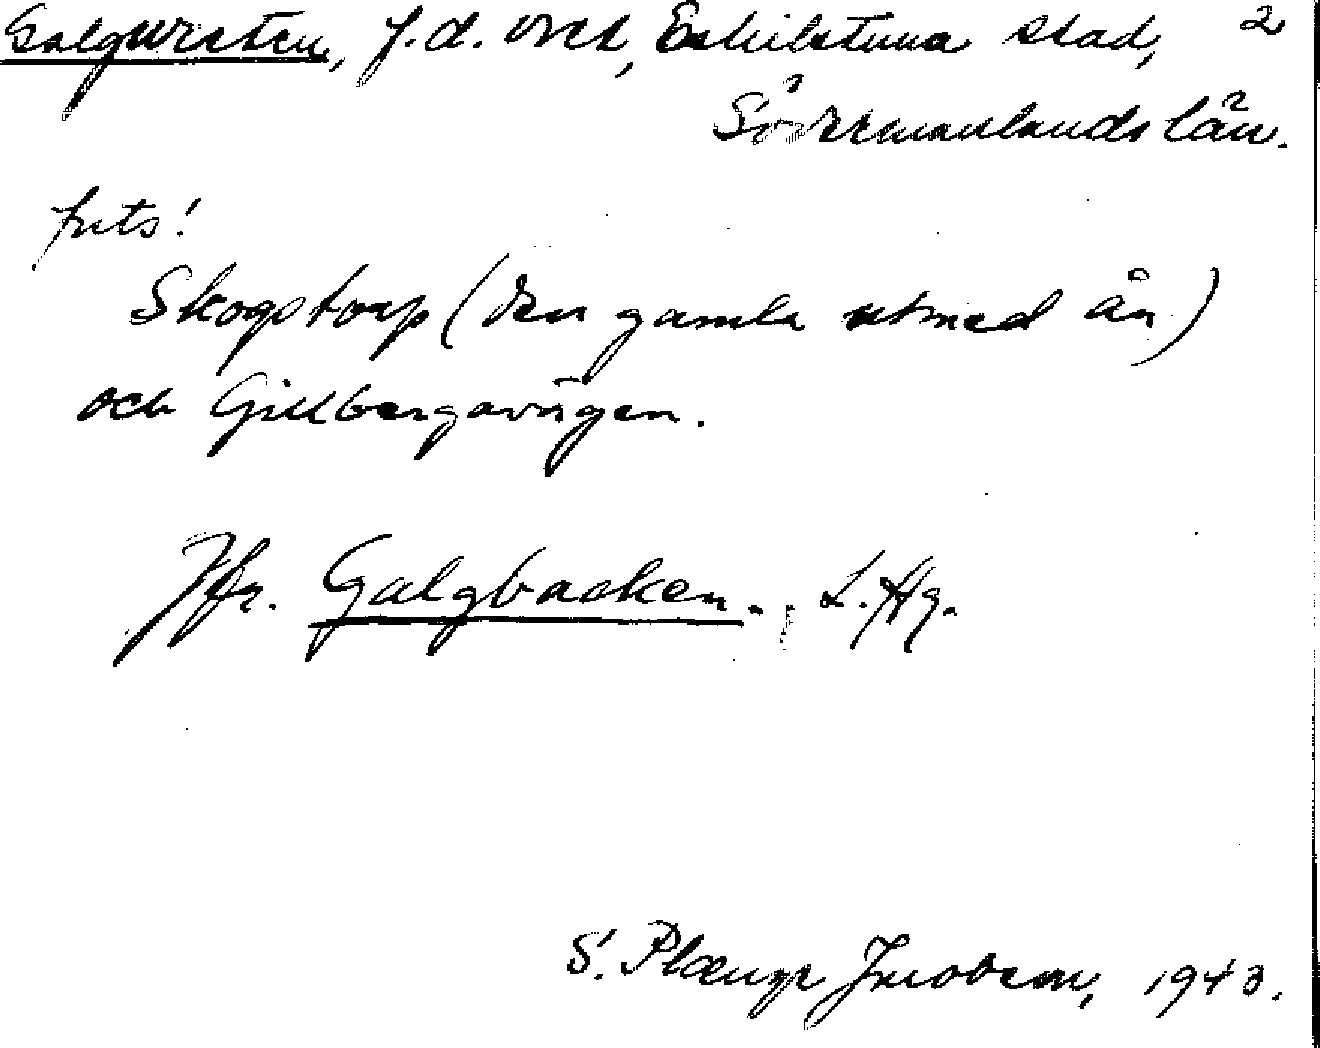 Galgvreten, f.d. vret, Eskilstuna stad, 2
Södermanlands län.
forts!
Skogstorp (den gamla utmed ån)
och Gillbergavägen.
Jfr. Galgbacken. L. Hg.
S. Plænge Jacobson, 1943.